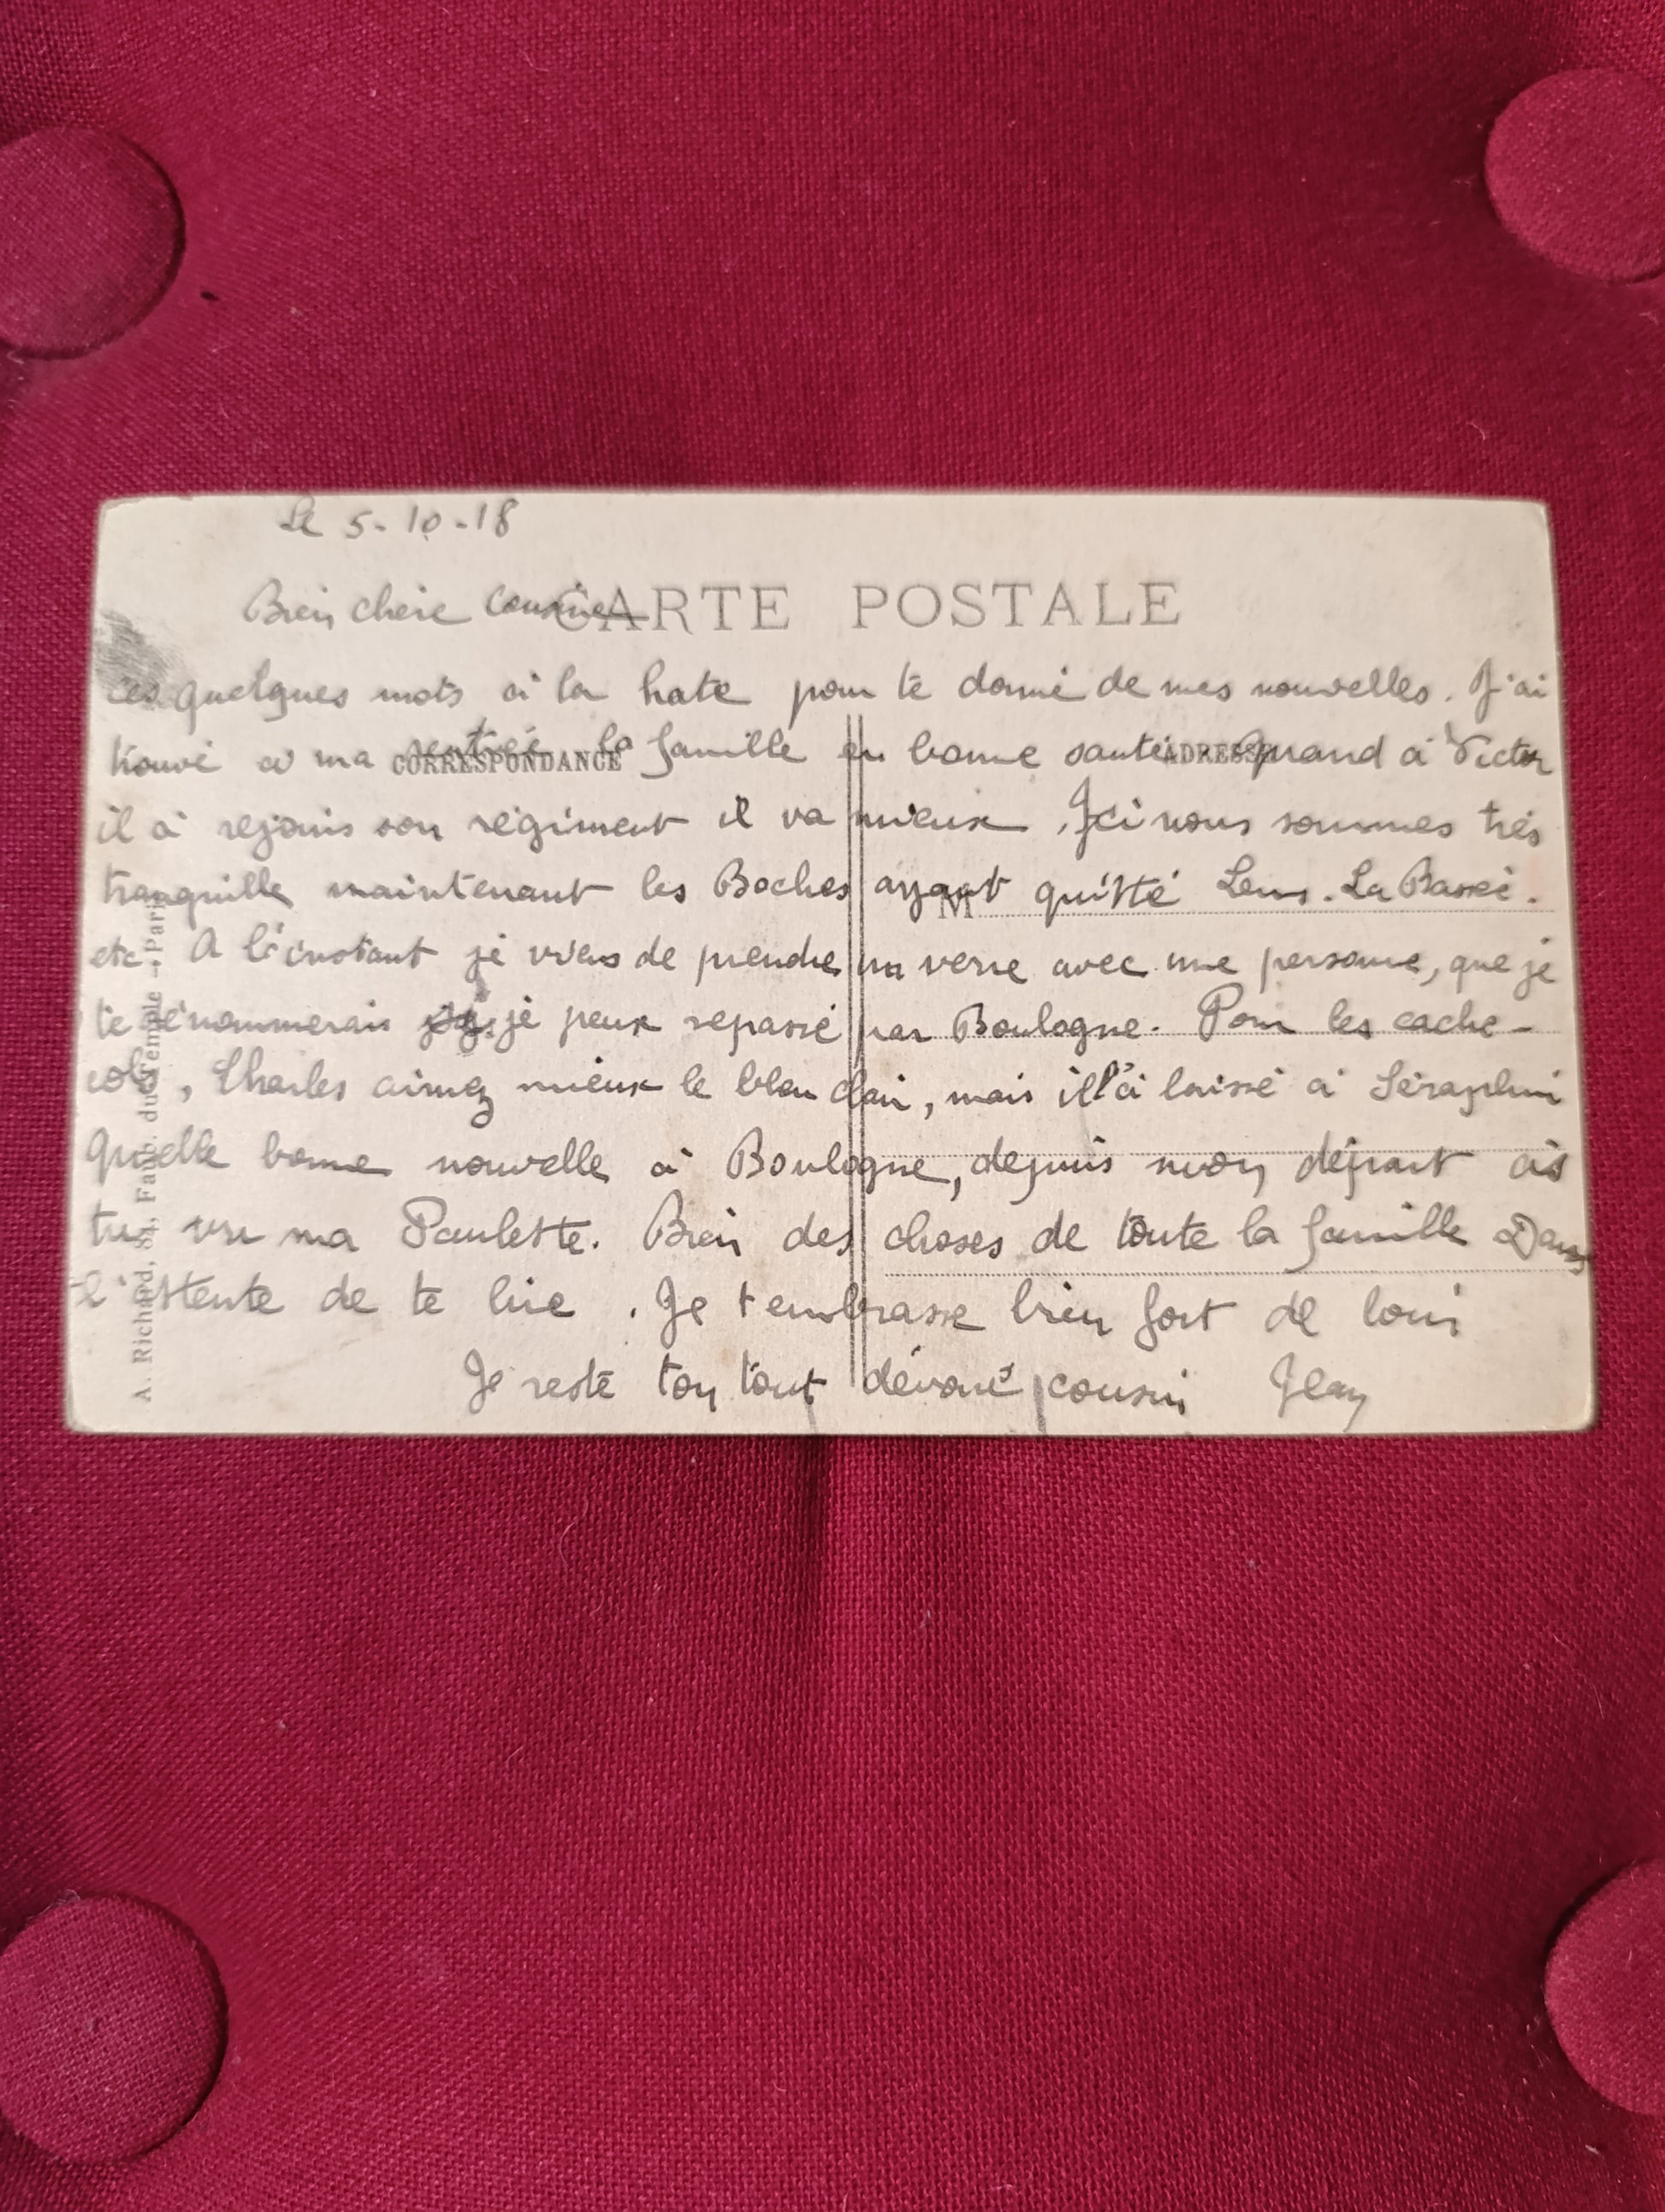 Le 5-10-18
CARTE POSTALE
Bien chère cousine
ces quelques mots à la hate pour te donné de mes nouvelles. J'ai
CORRESPONDANCE
ADRESSE
trouvé à ma rentrée la famille en bonne santé. Quand à Victor
il à rejoins son régiment il va mieux. Ici nous sommes très
tranquille maintenant les Boches ayant quitté Lens. La Bassé.
M
etc. A l'instant je viens de prendre un verre avec une personne, que je
te nommerais si je peux repassé par Boulogne. Pour les cache-
cols, Charles aimez mieux le bleu clair, mais il l'à laissé à Séraphin
Quelle bonne nouvelle à Boulogne, depuis mon départ às
tu vu ma Paulette. Bien des choses de toute la famille Dans
l'attente de te lire. Je t'embrasse bien fort de loin
Je reste ton tout dévoué cousin Jean
A. Richard, 84, Faub. du Temple - Paris